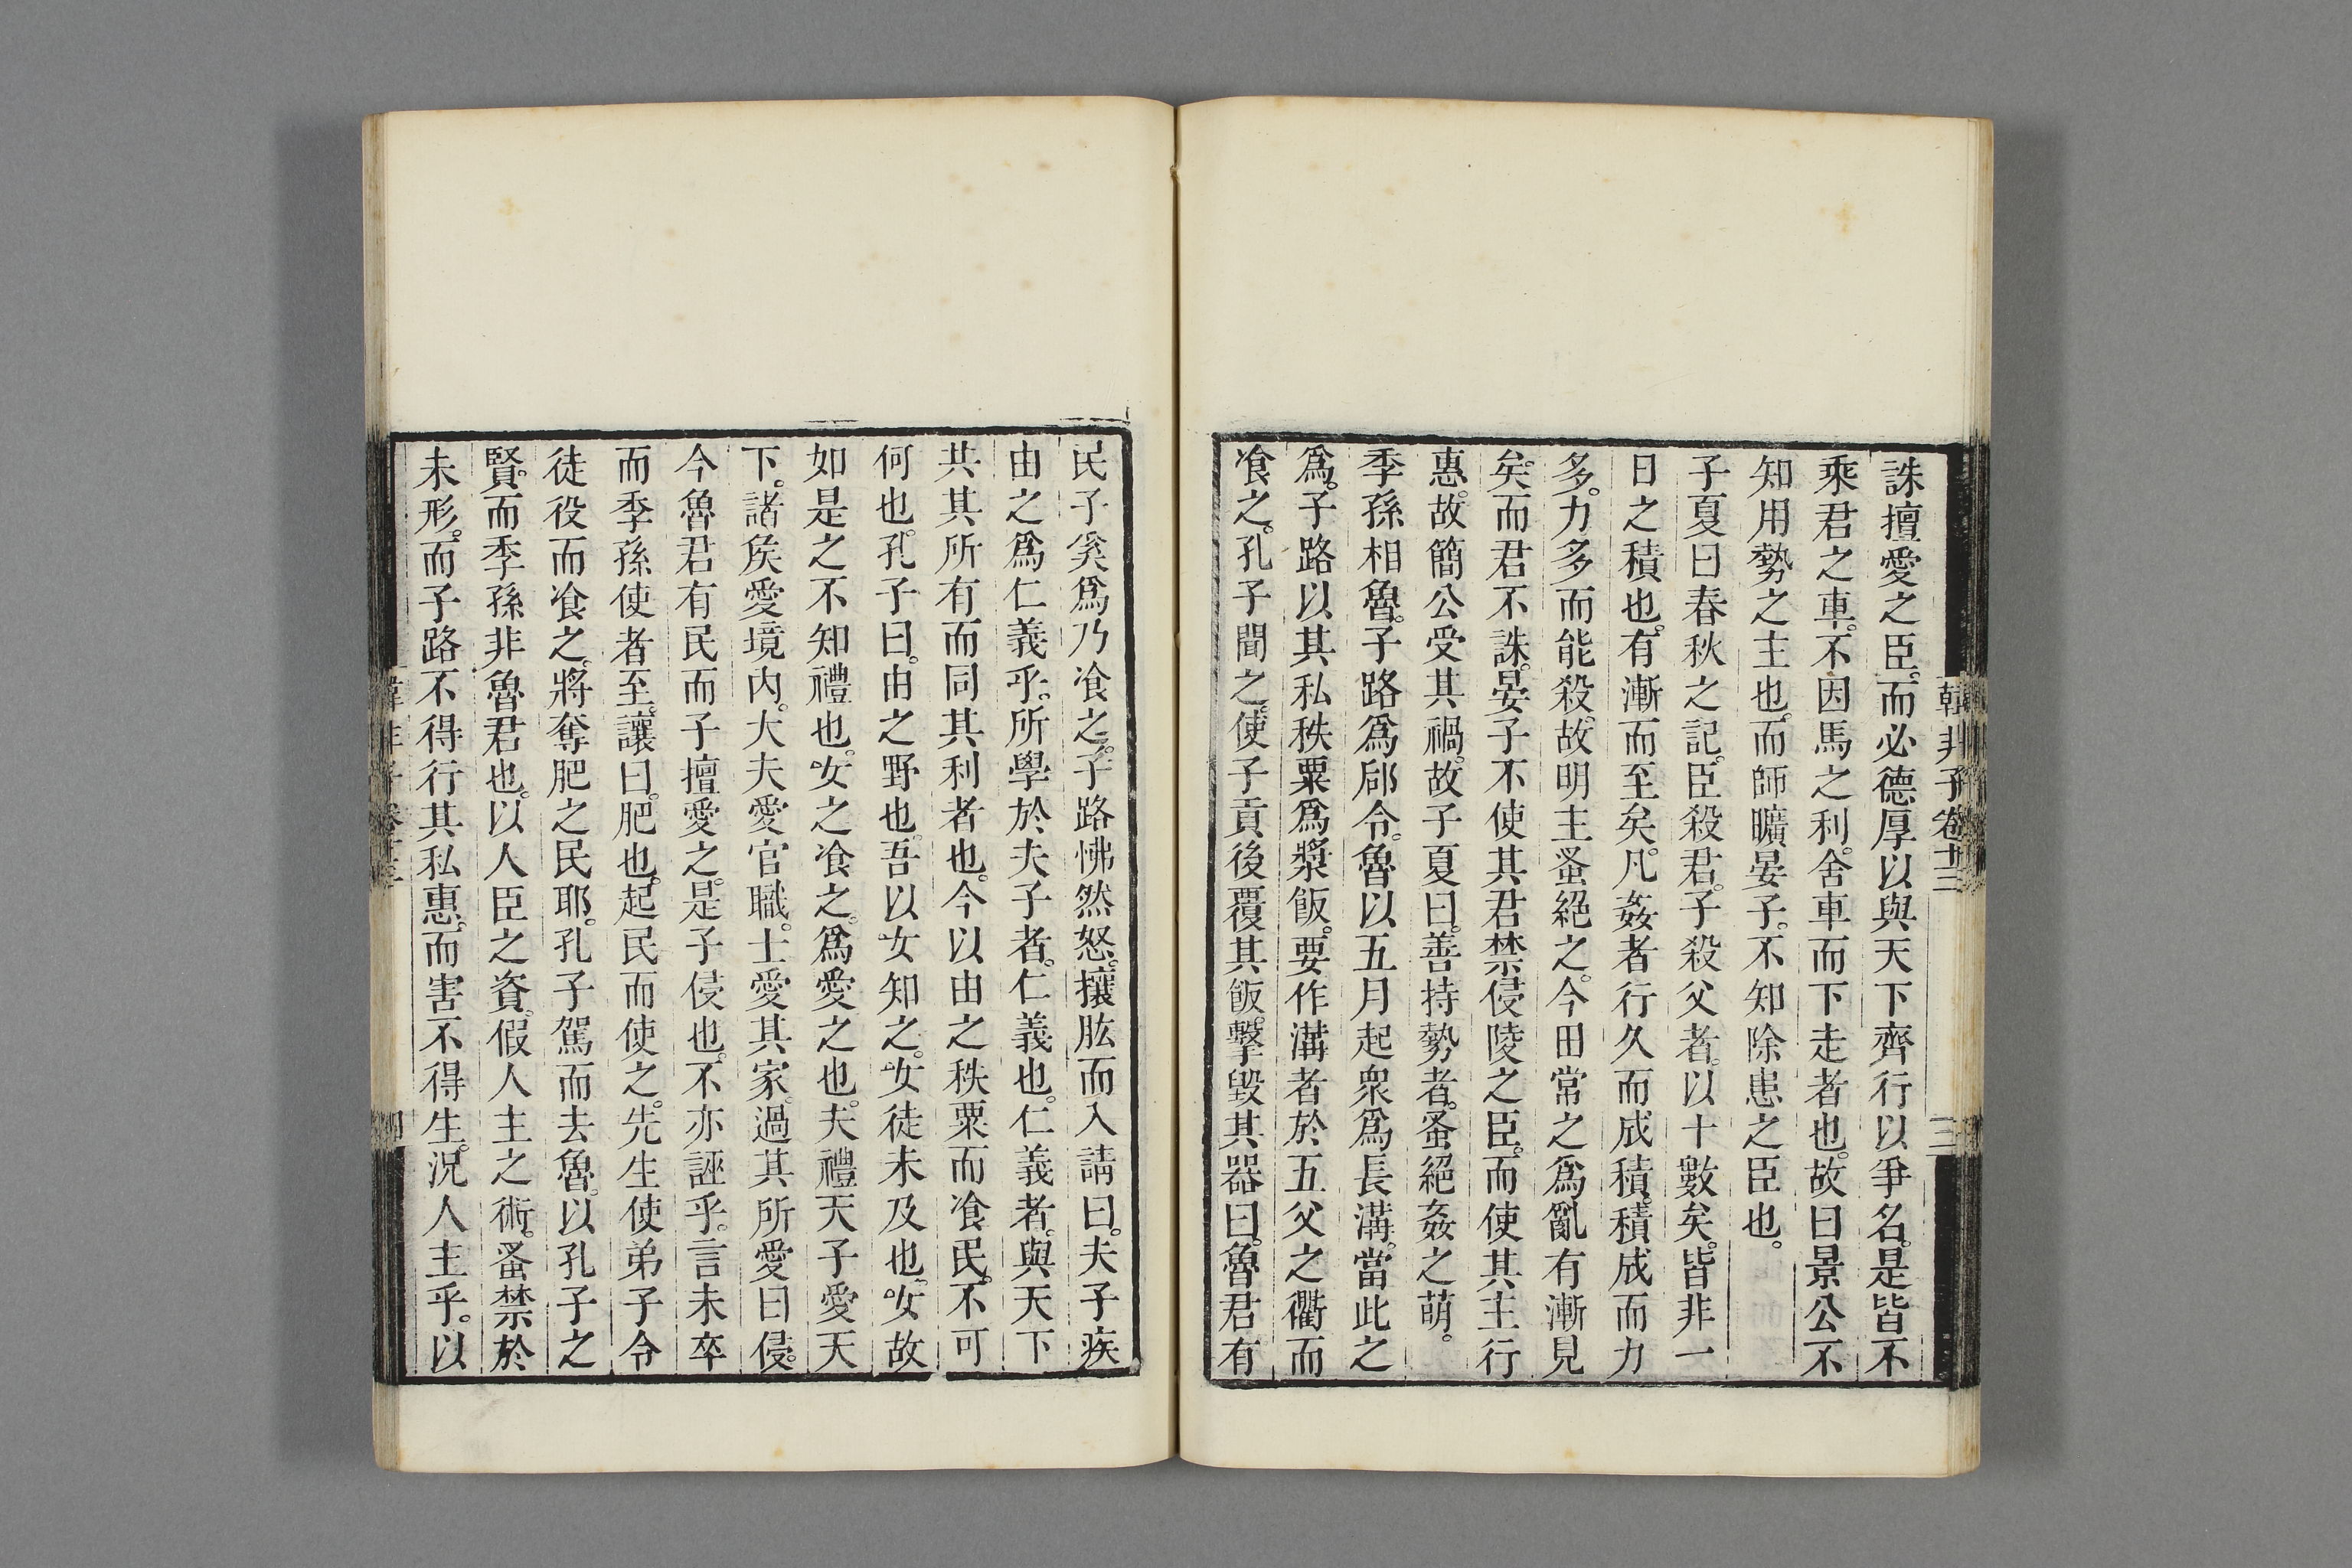 韓非子卷十三
三
誅擅愛之臣。而必德厚以與天下齊行以爭名。是皆不
乘君之車。不因馬之利。舍車而下走者也。故曰景公不
知用勢之主也。而師曠晏子。不知除患之臣也。
子夏曰春秋之記。臣殺君。子殺父者。以十數矣。皆非一
日之積也。有漸而至矣。凡姦者行久而成積。積成而力
多。力多而能殺。故明主蚤絕之。今田常之爲亂有漸見
矣。而君不誅。晏子不使其君禁侵陵之臣。而使其主行
惠。故簡公受其禍。故子夏曰。善持勢者。蚤絕姦之萌。
季孫相魯。子路爲郈令。魯以五月起衆爲長溝。當此之
爲。子路以其私秩粟爲漿飯。要作溝者於五父之衢而
飡之。孔子聞之。使子貢後覆其飯。擊毀其器曰。魯君有
民子奚爲乃飡之。子路怫然怒。攘肱而入請曰。夫子疾
由之爲仁義乎。所學於夫子者。仁義也。仁義者。與天下
共其所有而同其利者也。今以由之秩粟而飡民。不可
何也。孔子曰。由之野也。吾以女知之。女徒未及也。女故
如是之不知禮也。女之飡之。爲愛之也。夫禮天子愛天
下。諸矦愛境內。大夫愛官職。士愛其家。過其所愛曰侵。
今魯君有民而子擅愛之。是子侵也。不亦誣乎。言未卒
而季孫使者至。讓曰。肥也。起民而使之。先生使弟子令
徒役而飡之。將奪肥之民耶。孔子駕而去魯。以孔子之
賢。而季孫非魯君也。以人臣之資。假人主之術。蚤禁於
未形。而子路不得行其私惠。而害不得生。況人主乎。以